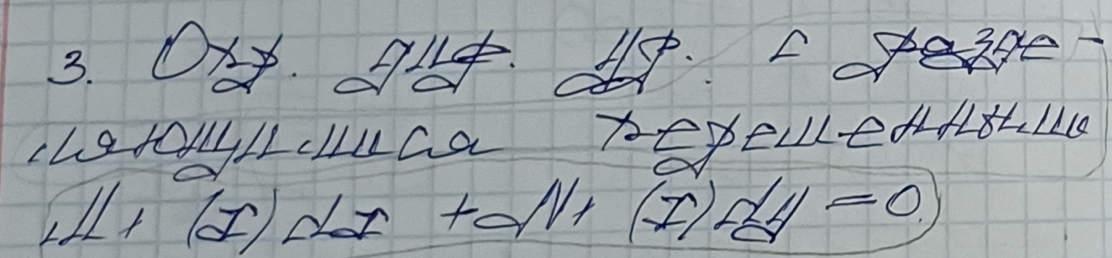 3. Опр. диф. ур. с разде-
ляющимися переменными
M₁ (x) dx + N₁ (x) dy = 0